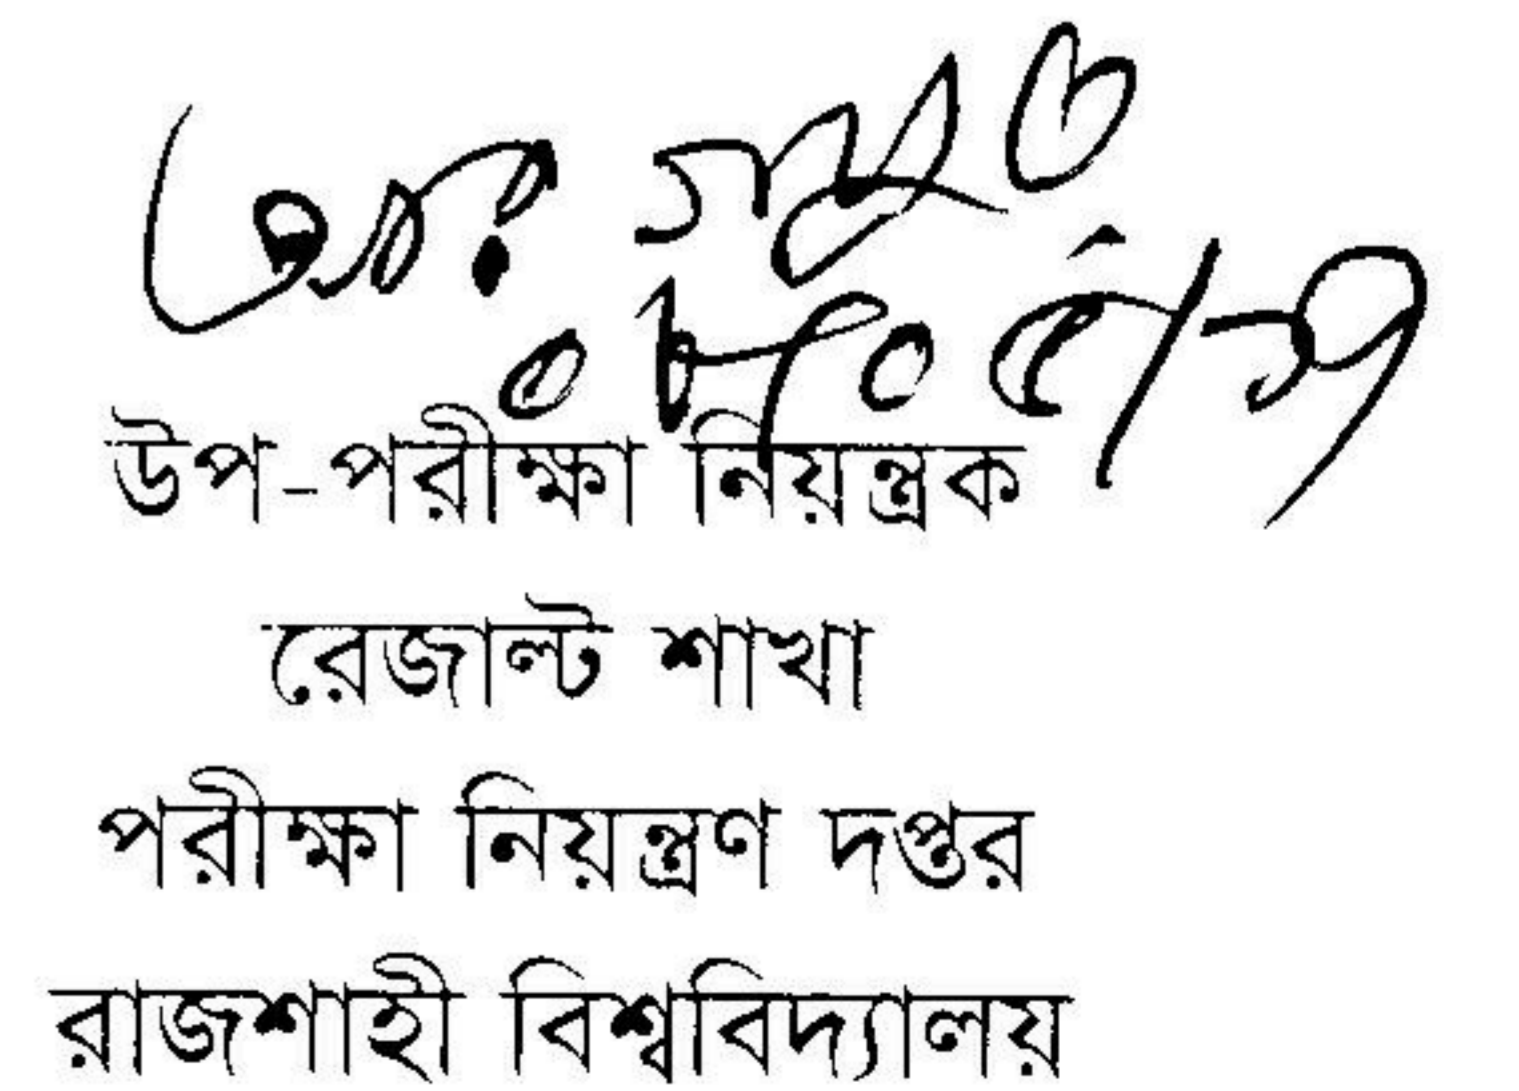 উপ-পরীক্ষা নিয়ন্ত্রক
রেজাল্ট শাখা
পরীক্ষা নিয়ন্ত্রণ দপ্তর
রাজশাহী বিশ্ববিদ্যালয়